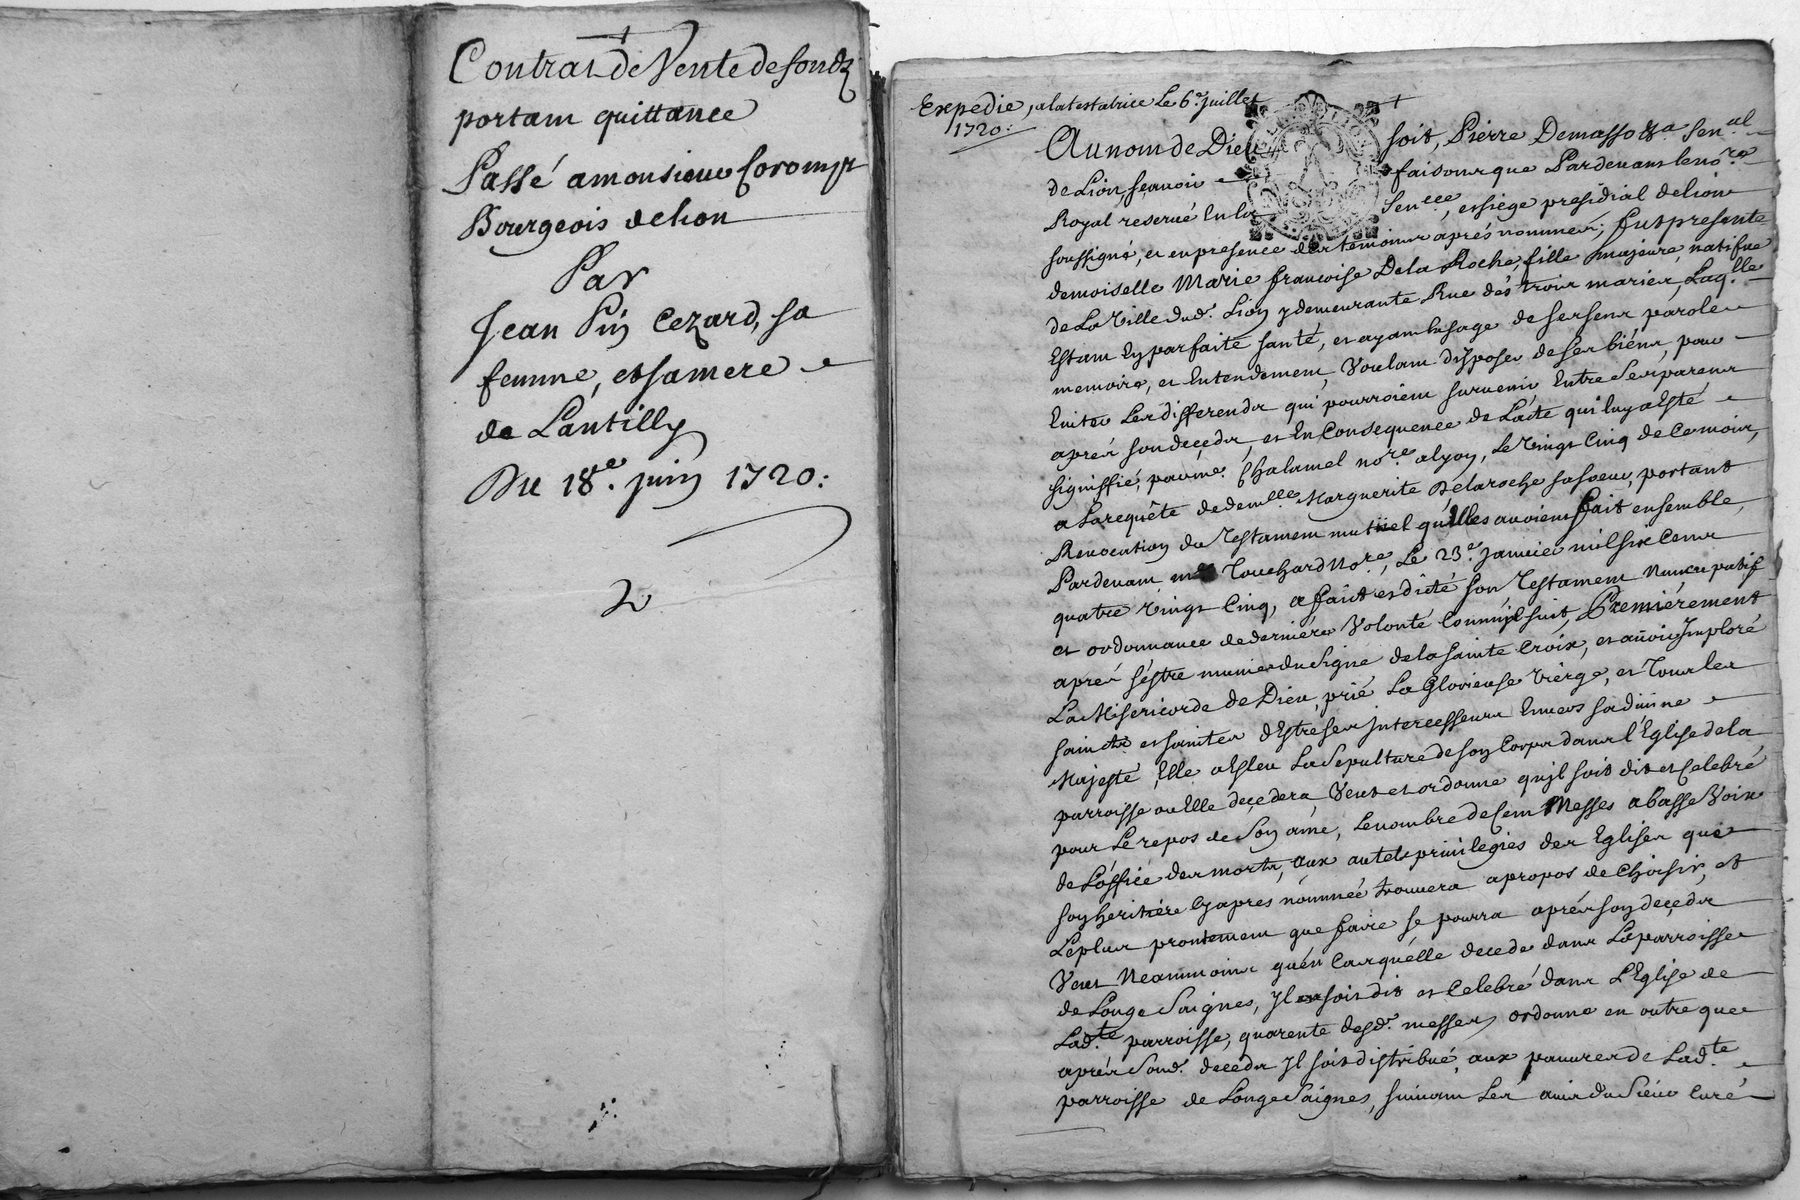 Contrat de Vente de fondz
portant quittance
Passé a monsieur Coromp
Bourgeois de lion
Par
Jean Pin Cezard, sa
femme, et sa mere
de Lantilly
Du 18e. juin 1720:
2
Expedie, a la testatrice Le 6e. juillet
1720:
Au nom de Dieu soit, Pierre Demasso &a Senal
de Lion, sçavoir faisons que Pardevant le nore
Royal reservé En la Sencee, et siege presidial de lion
soussigné, et en presence des temoins aprés nommés; fut presente
demoiselle Marie francoise De la Roche, fille majeure, natifue
de La Ville dud. Lion y demeurante Rue dés trois maries, Laqlle
Estant En parfaite santé, et ayant l'usage de ses sens parole
memoire, et Entendement, Voulant disposer de ses biéns, pour
Eviter Les differends qui pourroient survenir Entre Ses parens
aprés son decedz, et En Consequence de L'acte qui luy a Esté
signiffié, par me. Chalamel nore. a lyon, Le Vingt Cinq de Ce mois,
a La requête de demlle Marguerite Delaroche sa soeur, portant
Revocation du Testament mutuel qu'Elles avoient fait ensemble,
Pardevant me Touchard Nore, Le 23e. janvier mil six Cens
quatre Vingt Cinq, a fait et dicté son Testament Nuncupatif
et ordonnance de derniére Volonté Comm'il suit, Premiérement
aprés s'éstre munie du Signe de la sainte Croix, et avoir Imploré
La Misericorde de Dieu, prié La Glorieuse Viérge, et Tous les
saincts et saintes d'Estre ses Intercesseurs Envers sa divine
Majesté, Elle a Esleu La Sepulture de son Corps dans l'Eglise de la
parroisse ou Elle decedera Veut et ordonne qu'il soit dit et Celebré
pour Le repos de Son ame, Le nombre de Cent Messes a basse Voix
de L'office des morts, aux autels privilegiés des Eglises que
son heritiére Cy aprés nommée trouvera a propos de Choisir, et
Le plus prontement que faire se pourra aprés son decedz
Veut Neanmoins qu'én Cas qu'élle decede dans La parroisse
de Longe Saignes, Il en soit dit et Celebré dans L'Eglise de
Ladte parroisse, quarente desd. messes, ordonne en outre que
aprés Sond. decedz Il soit distribué, aux pauvres de Ladte
parroisse de Longe Saignes, suivant Les avis du Sieur Curé